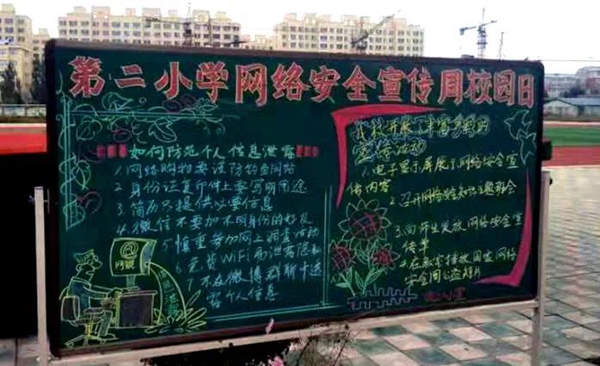 第二小学网络安全宣传周校园日
如何防范个人信息泄露
1.网络购物要谨防钓鱼网站
2.身份证复印件上要写明用途
3.简历只提供必要信息
4.微信不要加不同身份的好友
5.慎重参加网上调查活动
6.免费WiFi易泄露隐私
7.不在微博、群聊中透
露个人信息
网银
我校开展了丰富多彩的
宣传活动
1.电子显示屏展示网络安全宣
传内容
2.召开网络安全知识主题班会
3.向师生发放网络安全宣
传单
4.在教室播放国家网络
安全周公益短片